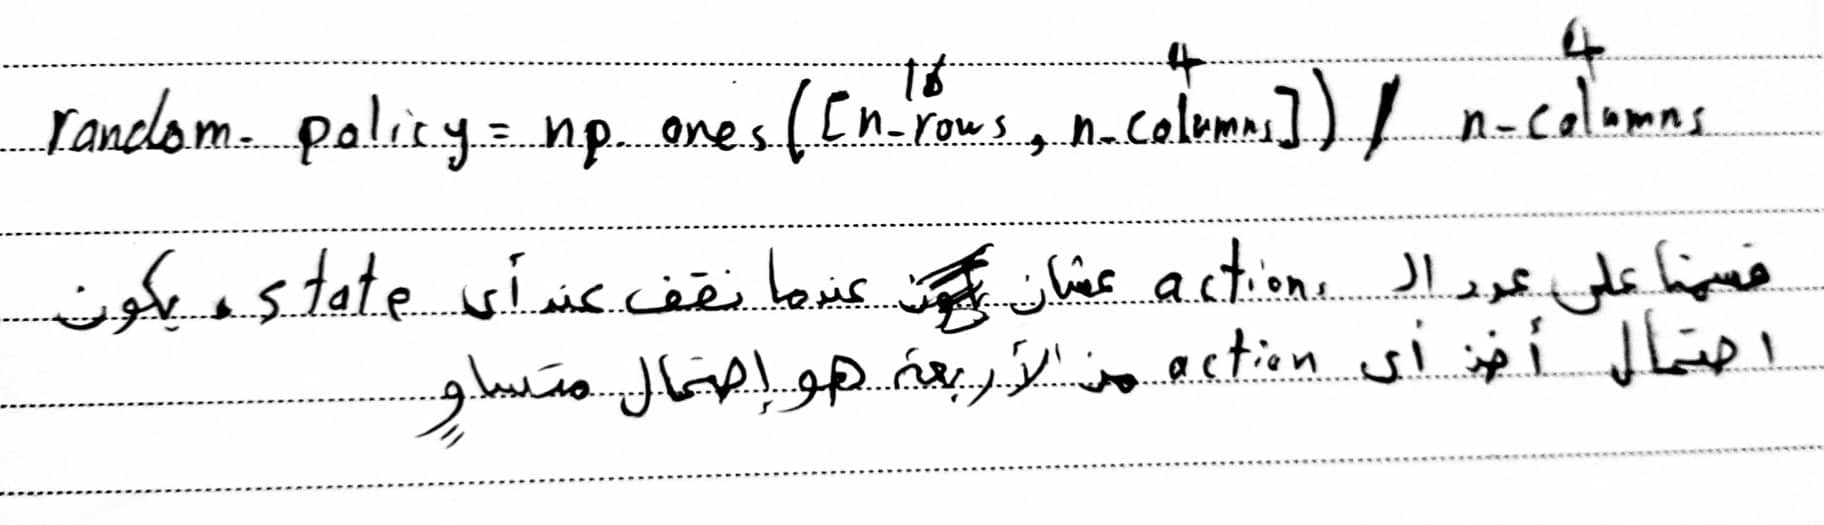 16 4 4
random_policy = np.ones([n_rows, n_columns]) / n_columns
قسمنا على عدد الـ actions عشان عندما نقف عند أى state، يكون
احتمال أخذ أى action من الأربعة هو إحتمال متساوٍ